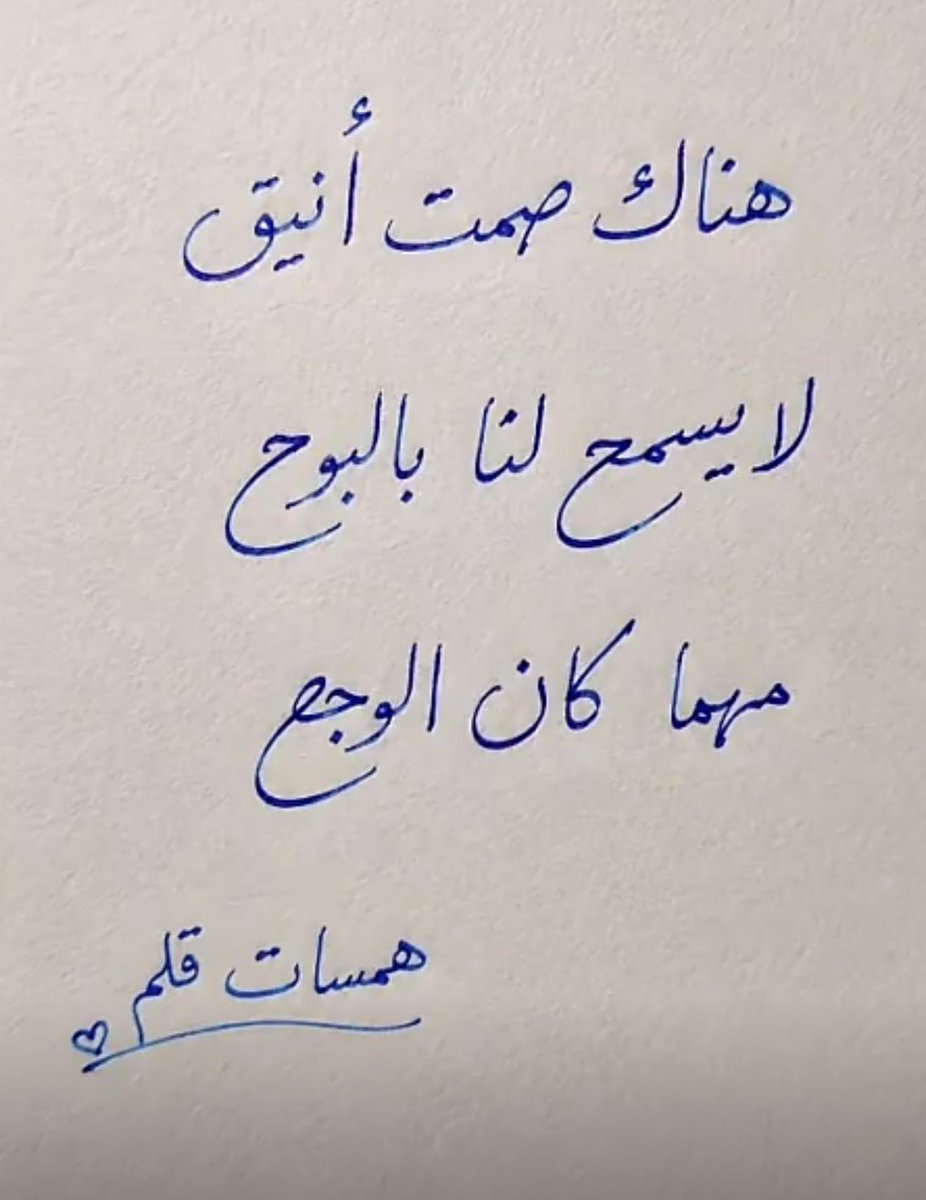 هناك صمت أنيق
لا يسمح لنا بالبوح
مهما كان الوجع
همسات قلم